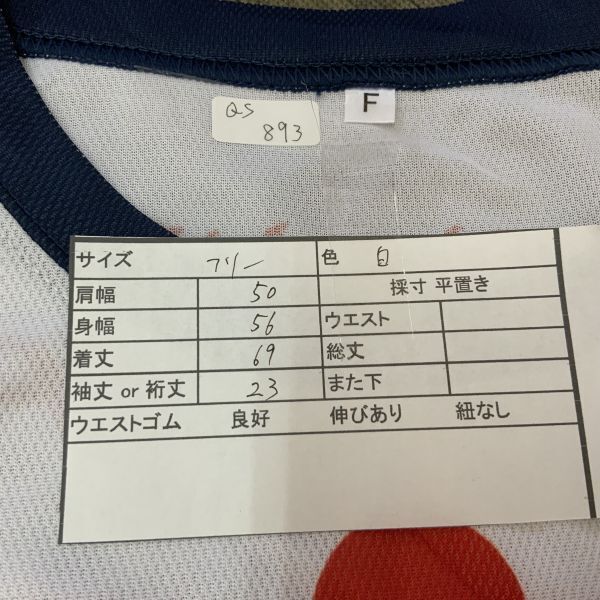 QS
893
F
サイズ フリー 色 白
肩幅 50 採寸 平置き
身幅 56 ウエスト
着丈 69 総丈
袖丈 or 裄丈 23 また下
ウエストゴム 良好 伸びあり 紐なし